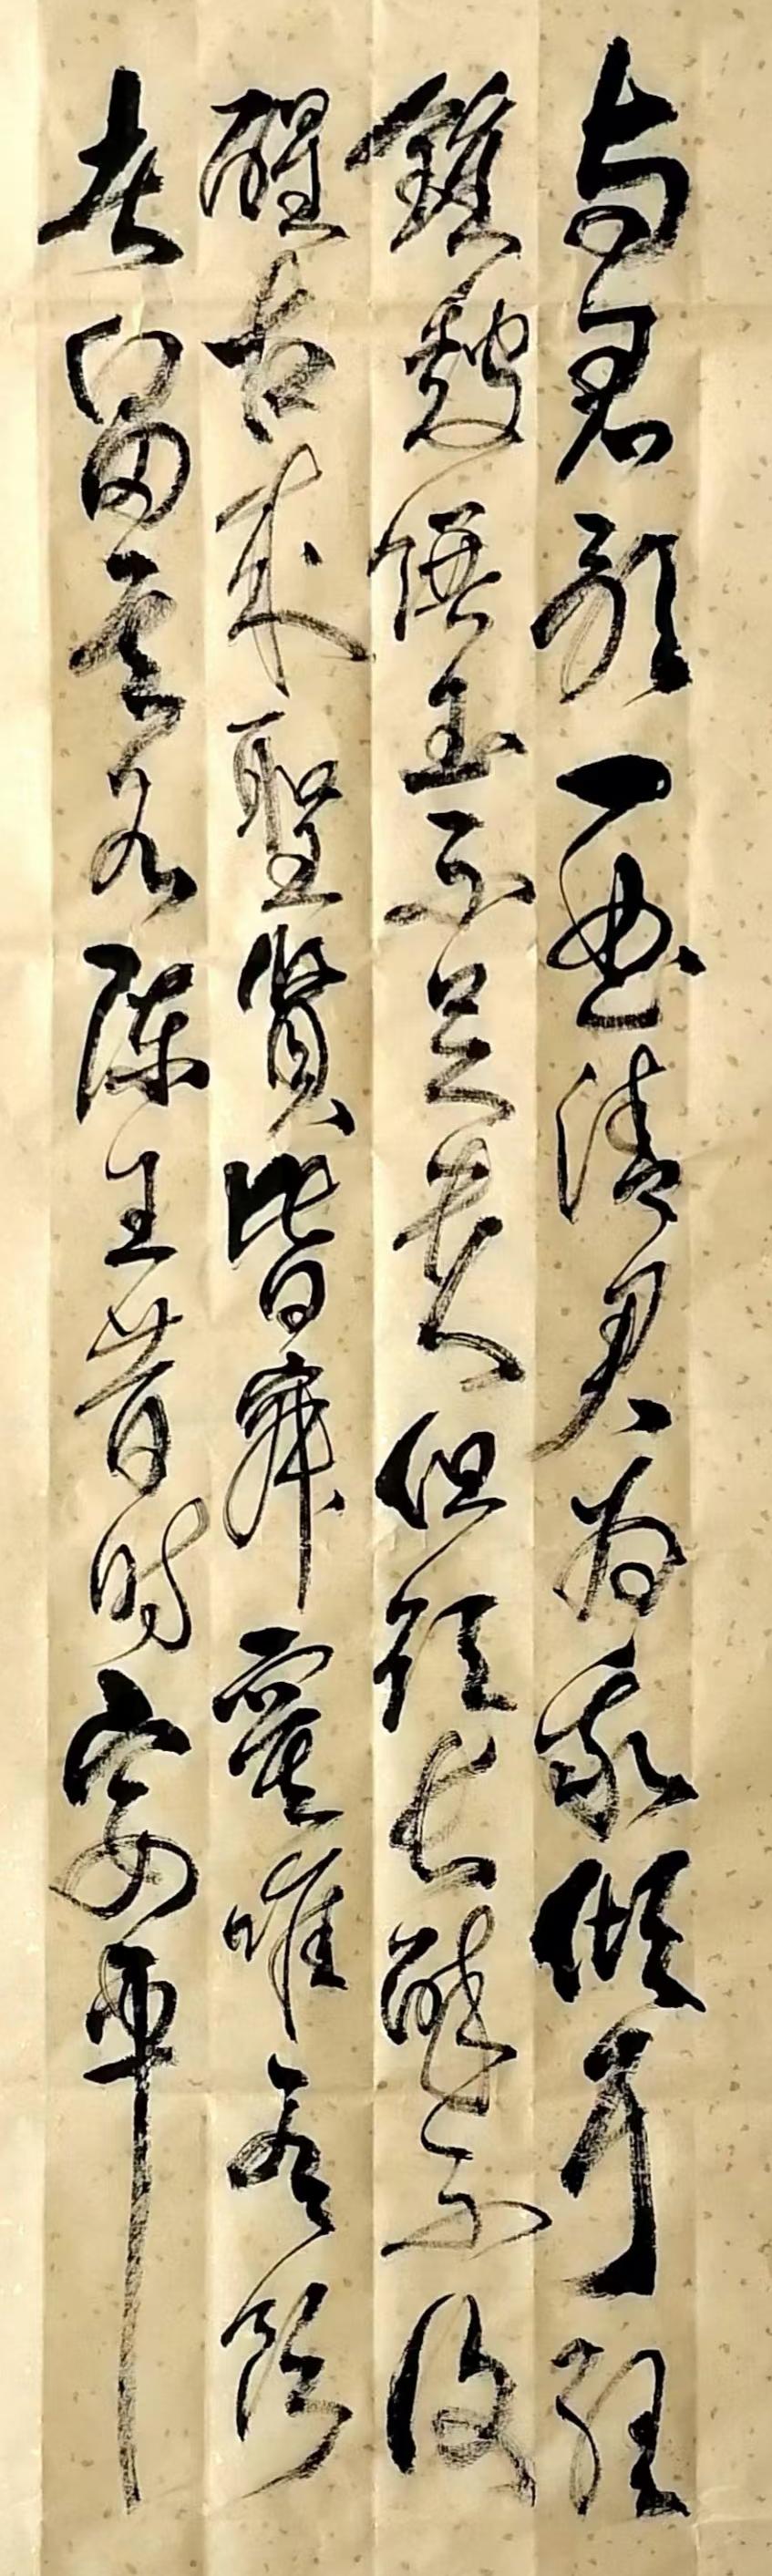 与君歌一曲請君為我傾耳聽
鐘鼓饌玉不足貴但願長醉不復
醒古来聖賢皆寂寞唯有飲
者留其名陳王昔時宴平